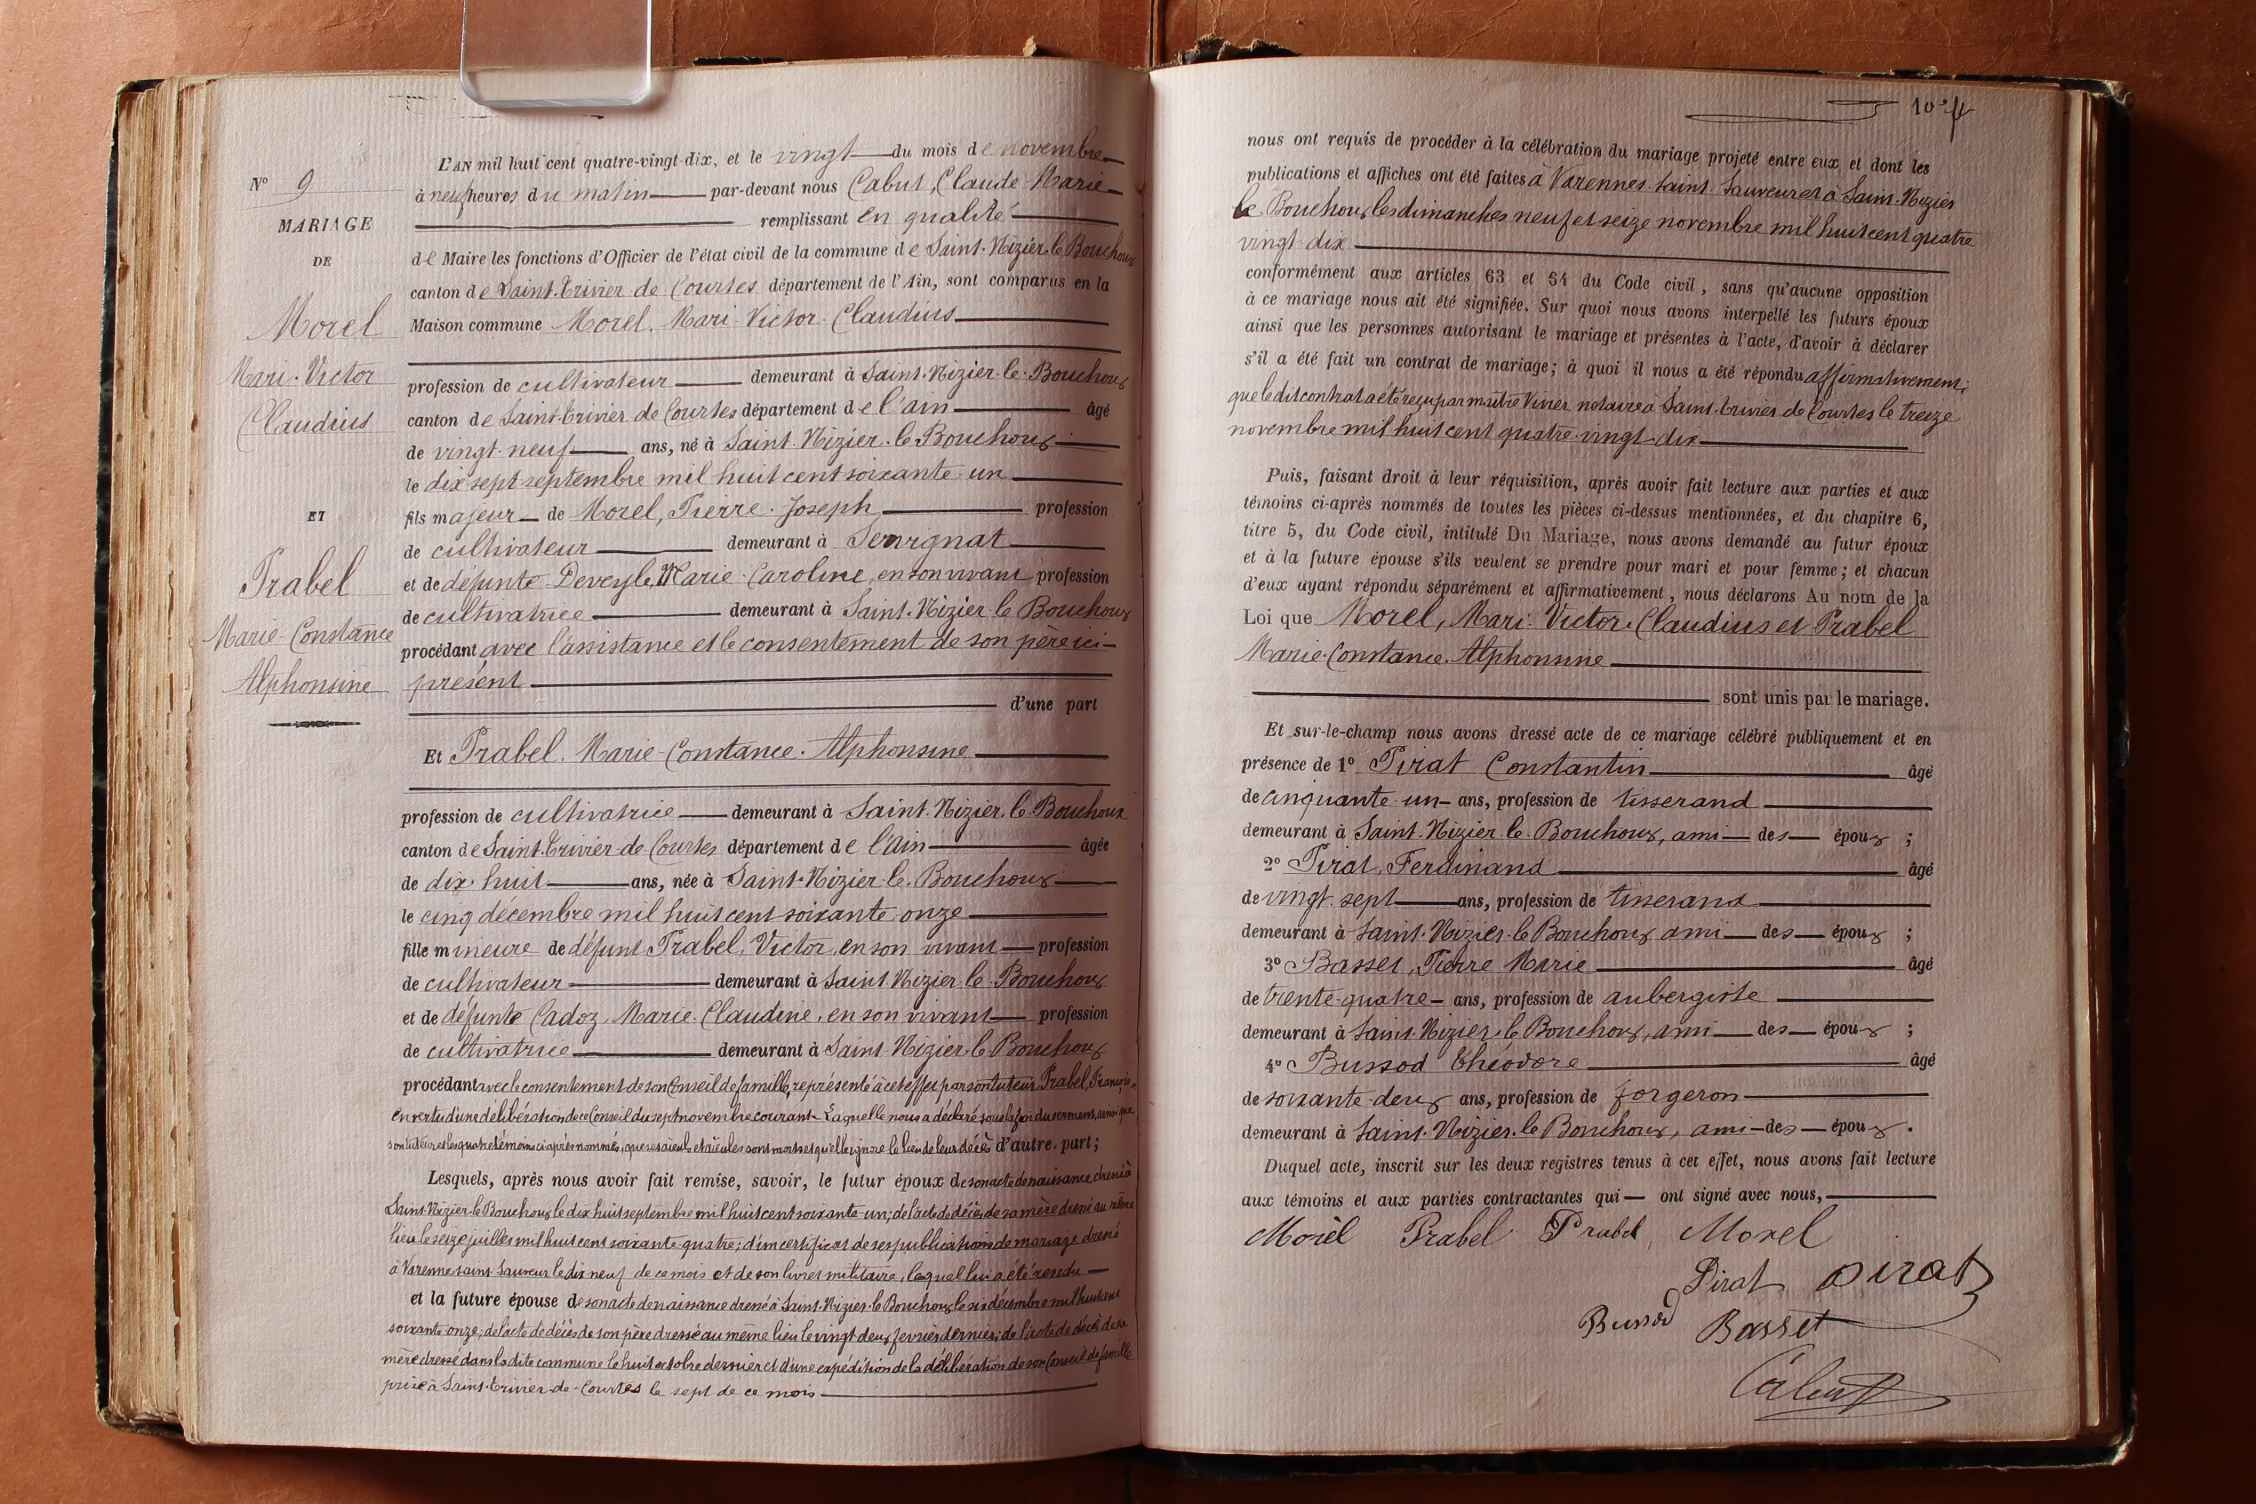 L'AN mil huit cent quatre-vingt-dix, et le vingt du mois de novembre
N° 9
à neuf heures du matin par-devant nous Cabut, Claude-Marie
remplissant en qualité
MARIAGE
de Maire les fonctions d'Officier de l'état civil de la commune de Saint-Nizier-le-Bouchoux
DE
canton de Saint-Trivier de Courtes département de l'Ain, sont comparus en la
Morel
Maison commune Morel, Mari-Victor-Claudius
Mari-Victor
profession de cultivateur demeurant à Saint-Nizier-le-Bouchoux
Claudius
canton de Saint-Trivier de Courtes département de l'ain âgé
de vingt-neuf ans, né à Saint-Nizier-le-Bouchoux
le dix sept septembre mil huit cent soixante-un
ET
fils majeur de Morel, Pierre-Joseph profession
de cultivateur demeurant à Servignat
Prabel
et de défunte Deveyle, Marie-Caroline, en son vivant profession
de cultivatrice demeurant à Saint-Nizier-le Bouchoux
Marie-Constance
procédant avec l'assistance et le consentement de son père ici
Alphonsine
présent
d'une part
Et Prabel, Marie-Constance-Alphonsine
profession de cultivatrice demeurant à Saint-Nizier-le-Bouchoux
canton de Saint-Trivier-de Courtes département de l'Ain âgée
de dix-huit ans, née à Saint-Nizier-le-Bouchoux
le cinq décembre mil huit cent soixante-onze
fille mineure de défunt Prabel, Victor, en son vivant profession
de cultivateur demeurant à Saint-Nizier-le-Bouchoux
et de défunte Cadoz, Marie-Claudine, en son vivant profession
de cultivatrice demeurant à Saint-Nizier-le Bouchoux
procédant avec le consentement de son Conseil de famille, représenté à cet effet par son tuteur Prabel, François,
en vertu d'une délibération de ce Conseil du sept novembre courant. Laquelle nous a déclaré sous la foi du serment, ainsi que
son tuteur et les quatre témoins ci-après nommés, que ses aïeuls et aïeules sont morts et qu'elle ignore le lieu de leur décès d'autre part;
Lesquels, après nous avoir fait remise, savoir, le futur époux de son acte de naissance dressé à
Saint-Nizier-le-Bouchoux le dix huit septembre mil huit cent soixante-un; de l'acte de décès de sa mère dressé au même
lieu le seize juillet mil huit cent soixante-quatre; d'un certificat de ses publications de mariage dressé
à Varenne-saint-Sauveur le dix neuf de ce mois et de son livret militaire, lequel lui a été rendu
et la future épouse de son acte de naissance dressé à Saint-Nizier-le-Bouchoux le six décembre mil huit cent
soixante-onze; de l'acte de décès de son père dressé au même lieu le vingt deux février dernier; de l'acte de décès de sa
mère dressé dans la dite commune le huit octobre dernier et d'une expédition de la délibération de son Conseil de famille
prise à Saint-Trivier-de-Courtes le sept de ce mois
nous ont requis de procéder à la célébration du mariage projeté entre eux et dont les
publications et affiches ont été faites à Varennes-Saint-Sauveur et à Saint-Nizier
le Bouchoux les dimanches neuf et seize novembre mil huit cent quatre
vingt-dix
conformément aux articles 63 et 64 du Code civil, sans qu'aucune opposition
à ce mariage nous ait été signifiée. Sur quoi nous avons interpellé les futurs époux
ainsi que les personnes autorisant le mariage et présentes à l'acte, d'avoir à déclarer
s'il a été fait un contrat de mariage; à quoi il nous a été répondu affirmativement;
que le dit contrat a été reçu par maître Vivier notaire à Saint-Trivier de Courtes le treize
novembre mil huit cent quatre-vingt-dix
Puis, faisant droit à leur réquisition, après avoir fait lecture aux parties et aux
témoins ci-après nommés de toutes les pièces ci-dessus mentionnées, et du chapitre 6,
titre 5, du Code civil, intitulé Du Mariage, nous avons demandé au futur époux
et à la future épouse s'ils veulent se prendre pour mari et pour femme; et chacun
d'eux ayant répondu séparément et affirmativement, nous déclarons Au nom de la
Loi que Morel, Mari-Victor-Claudius et Prabel
Marie-Constance-Alphonsine
sont unis par le mariage.
Et sur-le-champ nous avons dressé acte de ce mariage célébré publiquement et en
présence de 1° Pirat Constantin âgé
de cinquante-un ans, profession de tisserand
demeurant à Saint-Nizier-le-Bouchoux, ami des époux ;
2° Pirat, Ferdinand âgé
de vingt-sept ans, profession de tisserand
demeurant à Saint-Nizier-le Bouchoux ami des époux ;
3° Basset, Pierre Marie âgé
de trente-quatre ans, profession de aubergiste
demeurant à Saint-Nizier-le Bouchoux, ami des époux ;
4° Bussod Théodore âgé
de soixante-deux ans, profession de forgeron
demeurant à Saint-Nizier-le Bouchoux, ami des époux.
Duquel acte, inscrit sur les deux registres tenus à cet effet, nous avons fait lecture
aux témoins et aux parties contractantes qui ont signé avec nous,
Morel Prabel Prabel Morel
Pirat Pirat
Bussod Basset
Cabut